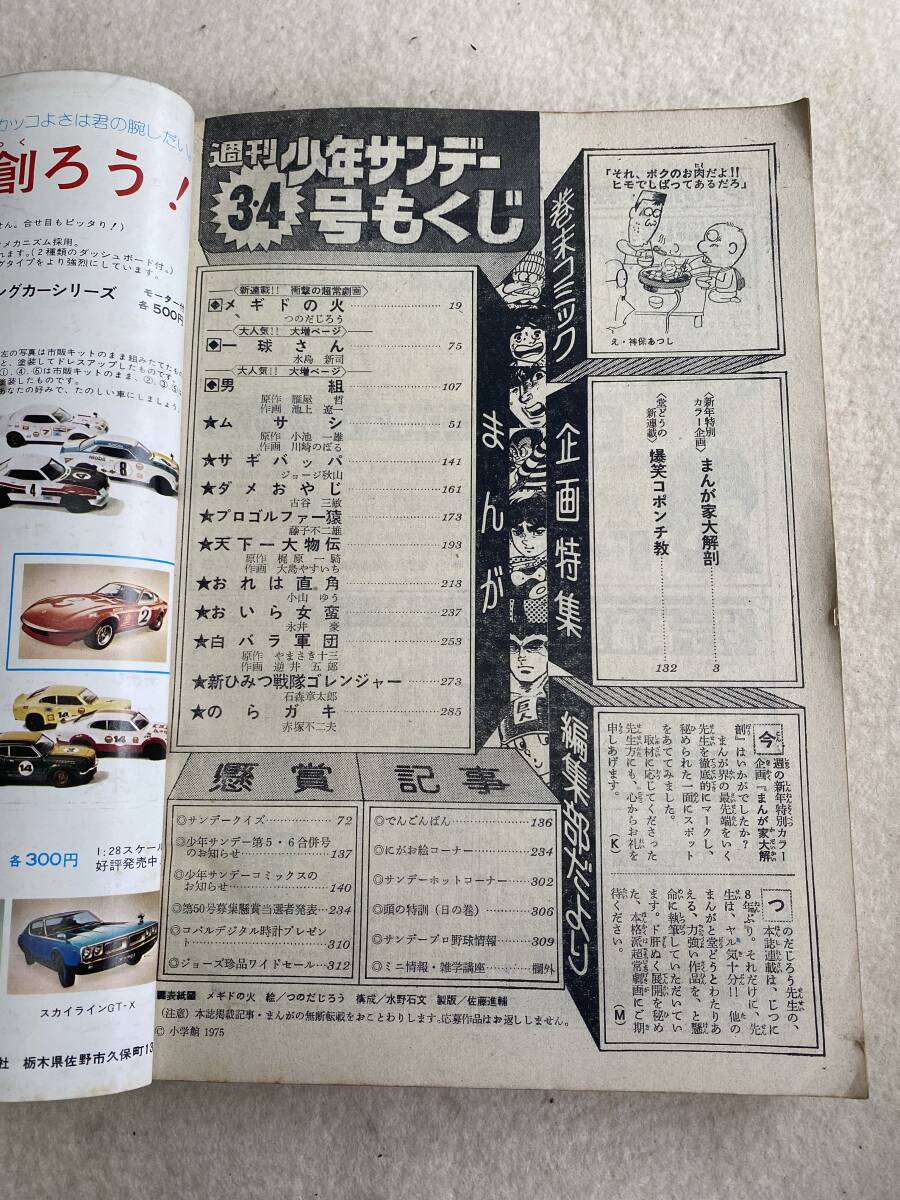 カッコよさは君の腕しだい。
創ろう!
せん。合せ目もピッタリ!)
メカニズム採用。
れます。(2種類のダッシュボード付。)
グタイプをより強烈にしています。
ングカーシリーズ
モーター付
各500円
左の写真は市販キットのまま組みたてたもの
と、塗装してドレスアップしたものです。
①、④、⑥は市販キットのまま、②、③、⑤は
塗装したものです。
あなたの好みで、たのしい車にしましょう。
各300円
1:28スケール
好評発売中
スカイラインGT-X
社 栃木県佐野市久保町13
週刊
少年サンデー
3・4
号もくじ
まんが
新連載!! 衝撃の超常劇画
◆メギドの火 19
つのだじろう
大人気!! 大増ページ
◆一球さん 75
水島 新司
大人気!! 大増ページ
◆男組 107
原作 雁屋 哲
作画 池上 遼一
★ムサシ 51
原作 小池 一雄
作画 川崎のぼる
★サギバッパ 141
ジョージ秋山
★ダメおやじ 161
古谷 三敏
★プロゴルファー猿 173
藤子不二雄
★天下一大物伝 193
原作 梶原 一騎
作画 大島やすいち
★おれは直角 213
小山 ゆう
★おいら女蛮 237
永井 豪
★白バラ軍団 253
原作 やまさき十三
作画 逆井 五郎
★新ひみつ戦隊ゴレンジャー 273
石森章太郎
★のらガキ 285
赤塚不二夫
巻末コミック
「それ、ボクのお肉だよ!!
ヒモでしばってあるだろ」
え・神保あつし
企画特集
〈新年特別
カラー企画〉
まんが家大解剖 3
〈堂どうの
新連載〉
爆笑コポンチ教 132
編集部だより
今週の新年特別カラー
企画『まんが家大解
剖』はいかがでしたか?
まんが界の最先端をいく
先生を徹底的にマークし、
秘められた一面にスポット
をあててみました。
取材に応じてくださった
先生方にも、心からお礼を
申しあげます。 (K)
つのだじろう先生の、
本誌連載は、じつに
8年ぶり。それだけに、先
生は、ヤル気十分!! 他の
まんがと堂どうとわたりあ
える、力強い作品を、と懸
命に執筆していただいてい
ます。ド肝ぬく展開を秘め
た、本格派超常劇画にご期
待ください。 (M)
懸賞
◎サンデークイズ 72
◎少年サンデー第5・6合併号
のお知らせ 137
◎少年サンデーコミックスの
お知らせ 140
◎第50号募集懸賞当選者発表 234
◎コパルデジタル時計プレゼン
ト 310
◎ジョーズ珍品ワイドセール 312
記事
◎でんごんばん 136
◎にがお絵コーナー 234
◎サンデーホットコーナー 302
◎頭の特訓(日の巻) 306
◎サンデープロ野球情報 309
◎ミニ情報・雑学講座 欄外
■表紙■ メギドの火 絵/つのだじろう 構成/水野石文 製版/佐藤進輔
(注意) 本誌掲載記事・まんがの無断転載をおことわりします。応募作品はお返ししません。
© 小学館 1975